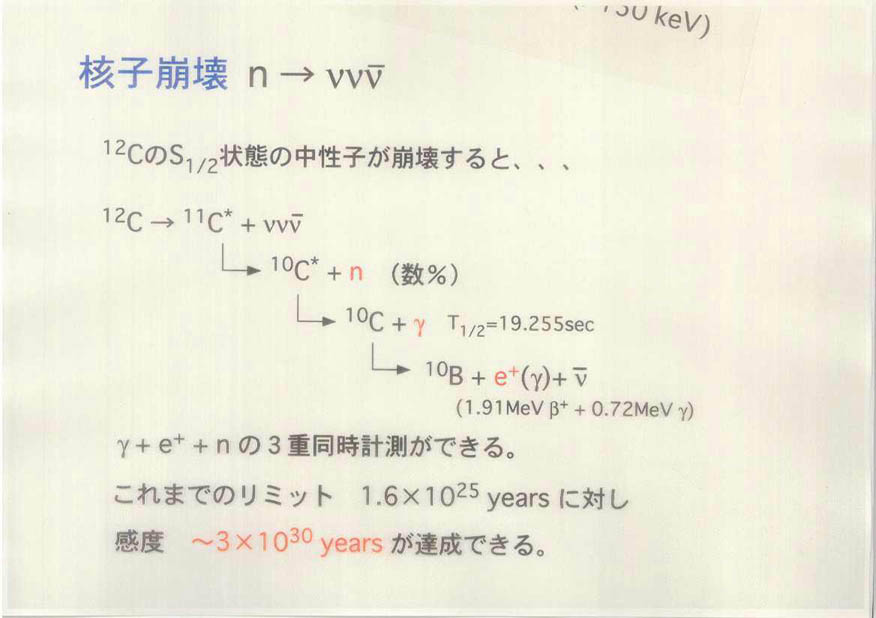 核子崩壊 n → ννν̄
¹²CのS₁/₂状態の中性子が崩壊すると、、、
¹²C → ¹¹C* + ννν̄
¹⁰C* + n (数%)
¹⁰C + γ T₁/₂=19.255sec
¹⁰B + e⁺(γ)+ ν̄
(1.91MeV β⁺ + 0.72MeV γ)
γ + e⁺ + n の3重同時計測ができる。
これまでのリミット 1.6×10²⁵ years に対し
感度 ～3×10³⁰ years が達成できる。